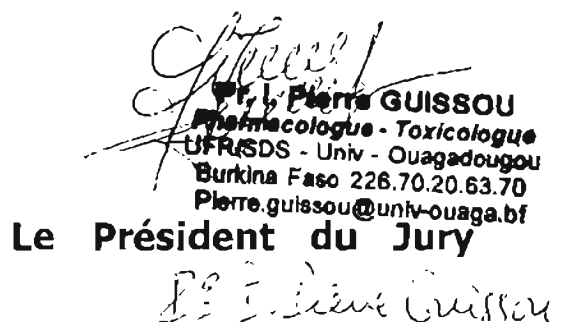 Pr. I. Pierre GUISSOU
Pharmacologue - Toxicologue
UFR/SDS - Univ - Ouagadougou
Burkina Faso 226.70.20.63.70
Pierre.guissou@univ-ouaga.bf
Le Président du Jury
Pr I. Pierre Guissou